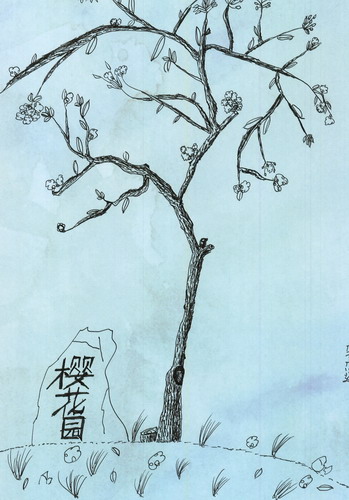 樱
花
园